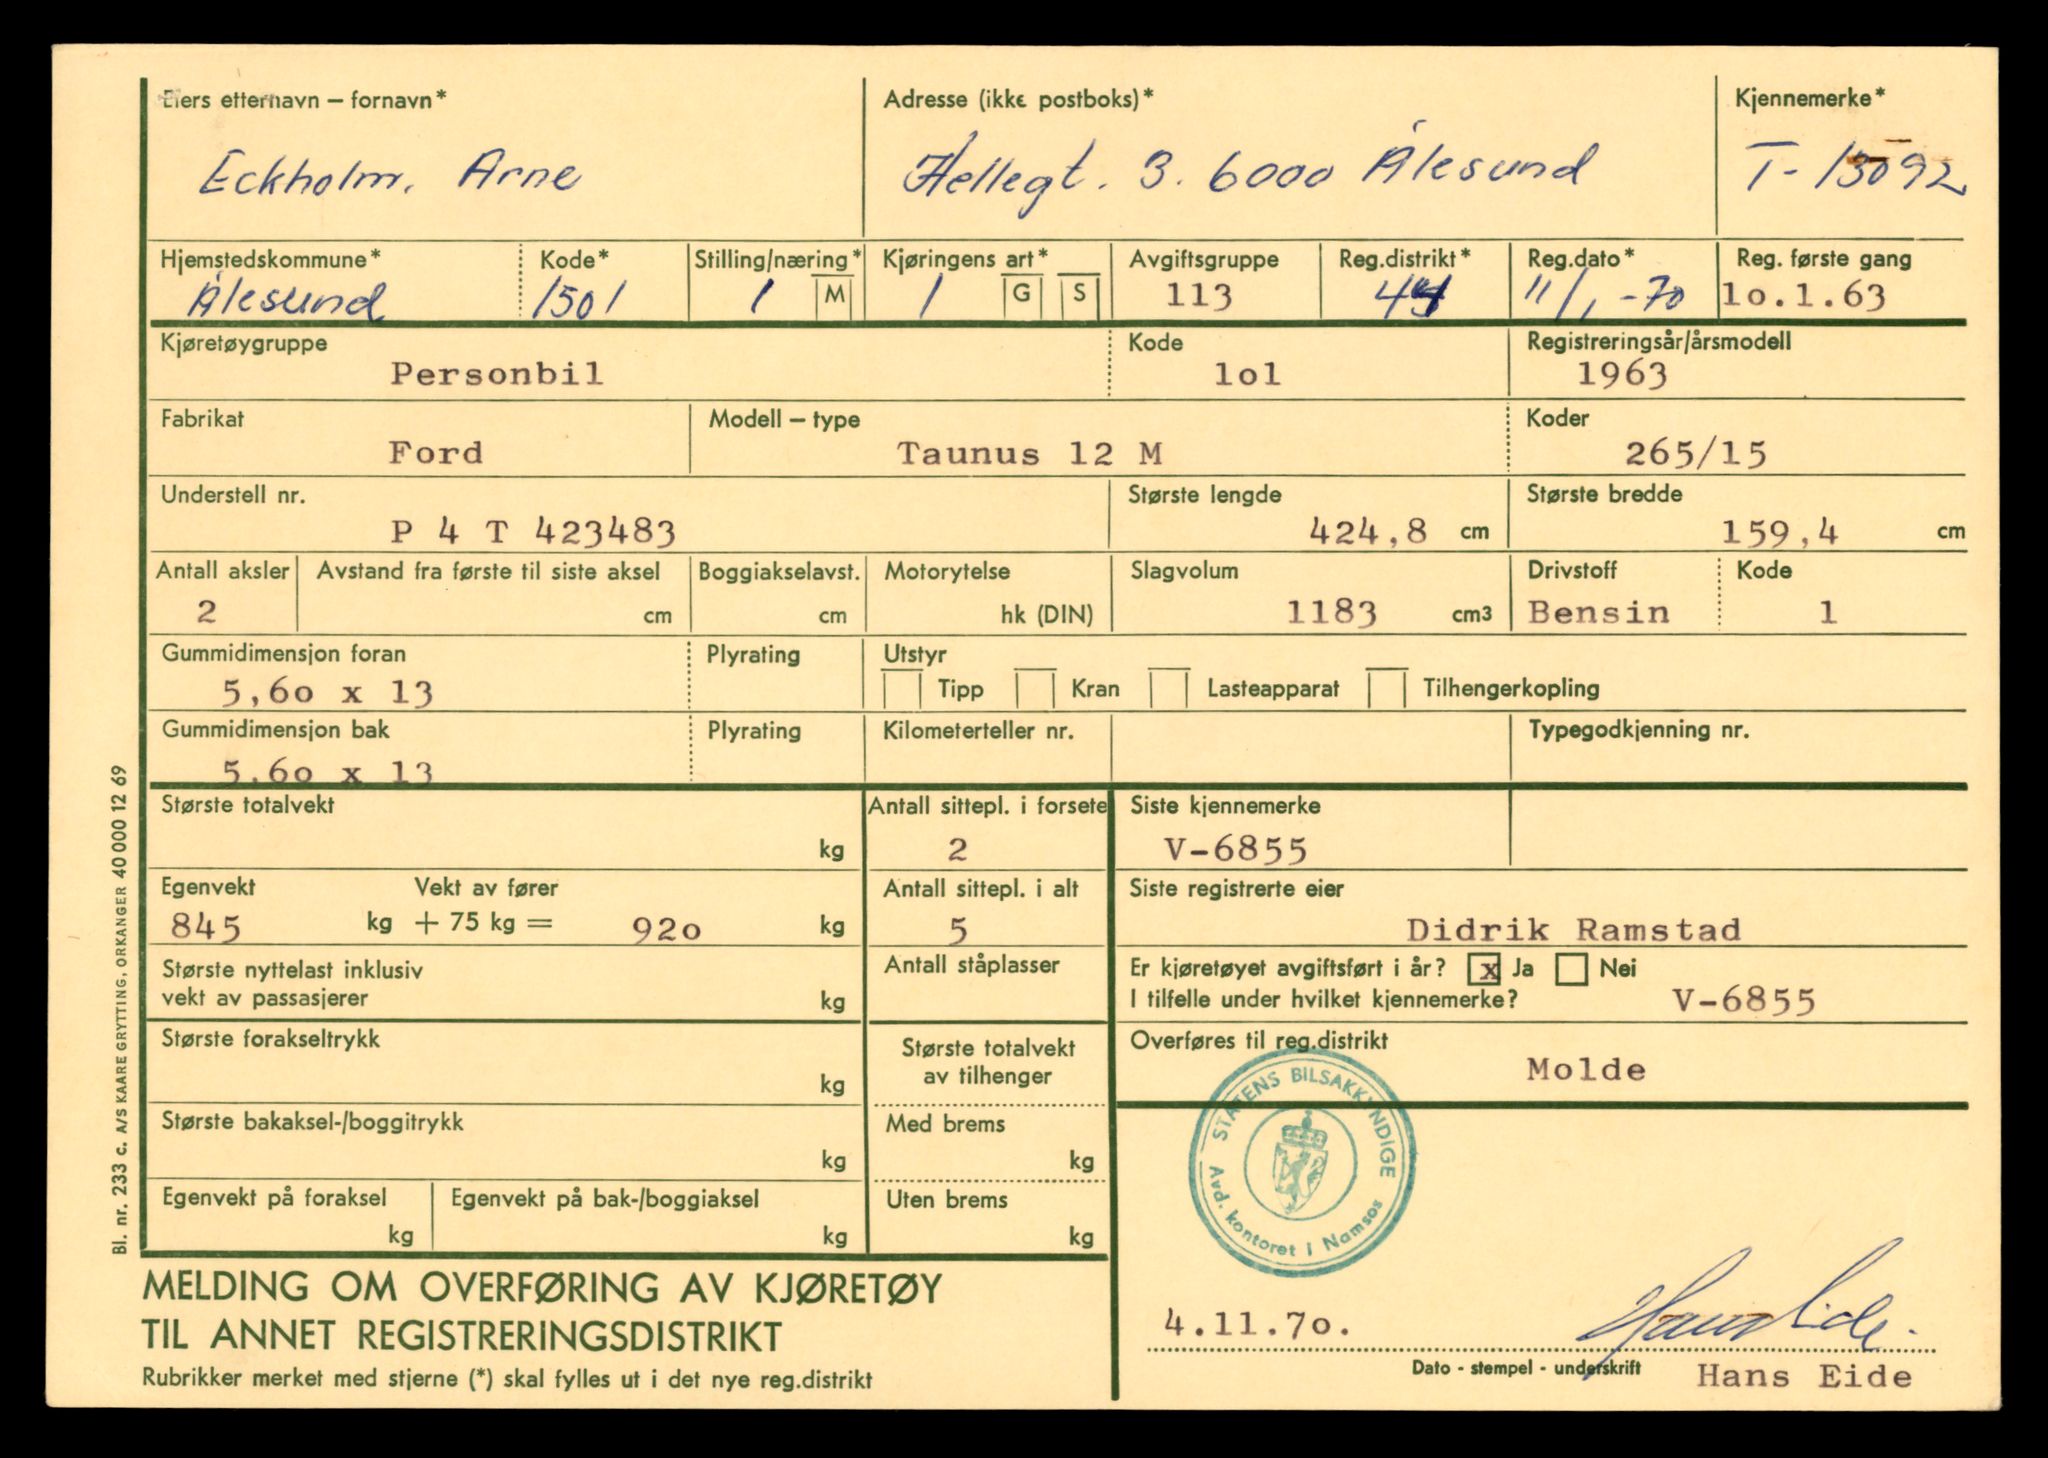 Eiers etternavn – fornavn* Adresse (ikke postboks)* Kjennemerke*
Eckholm, Arne Hellegt. 3. 6000 Ålesund T-13092
Hjemstedskommune* Kode* Stilling/næring* Kjøringens art* Avgiftsgruppe Reg.distrikt* Reg.dato* Reg. første gang
Ålesund 1501 1 M 1 G S 113 11/1-70 1o.1.63
Kjøretøygruppe Kode Registreringsår/årsmodell
Personbil 1o1 1963
Fabrikat Modell – type Koder
Ford Taunus 12 M 265/15
Understell nr. Største lengde Største bredde
P 4 T 423483 424,8 cm 159,4 cm
Antall aksler Avstand fra første til siste aksel Boggiakselavst. Motorytelse Slagvolum Drivstoff Kode
2 cm cm hk (DIN) 1183 cm3 Bensin 1
Gummidimensjon foran Plyrating Utstyr
5,6o x 13 Tipp Kran Lasteapparat Tilhengerkopling
Gummidimensjon bak Plyrating Kilometerteller nr. Typegodkjenning nr.
5.6o x 13
Største totalvekt Antall sittepl. i forsete Siste kjennemerke
kg 2 V-6855
Egenvekt Vekt av fører Antall sittepl. i alt Siste registrerte eier
845 kg + 75 kg = 92o kg 5 Didrik Ramstad
Største nyttelast inklusiv Antall ståplasser Er kjøretøyet avgiftsført i år? x Ja Nei
vekt av passasjerer kg I tilfelle under hvilket kjennemerke? V-6855
Største forakseltrykk Største totalvekt Overføres til reg.distrikt
kg av tilhenger Molde
Største bakaksel-/boggitrykk Med brems
kg kg
Egenvekt på foraksel Egenvekt på bak-/boggiaksel Uten brems
kg kg kg
STATENS BILSAKKYNDIGE
Avd. kontoret i Namsos
MELDING OM OVERFØRING AV KJØRETØY
TIL ANNET REGISTRERINGSDISTRIKT
Rubrikker merket med stjerne (*) skal fylles ut i det nye reg.distrikt
4.11.7o. Hans Eide
Dato - stempel - underskrift Hans Eide
Bl. nr. 233 c. A/S KAARE GRYTTING, ORKANGER 40 000 12 69